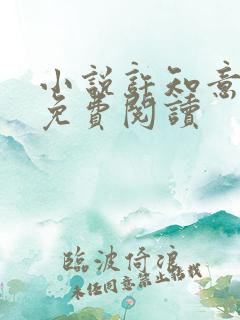 小說許知意
免費閱讀
臨波倚浪
未經同意禁止轉載